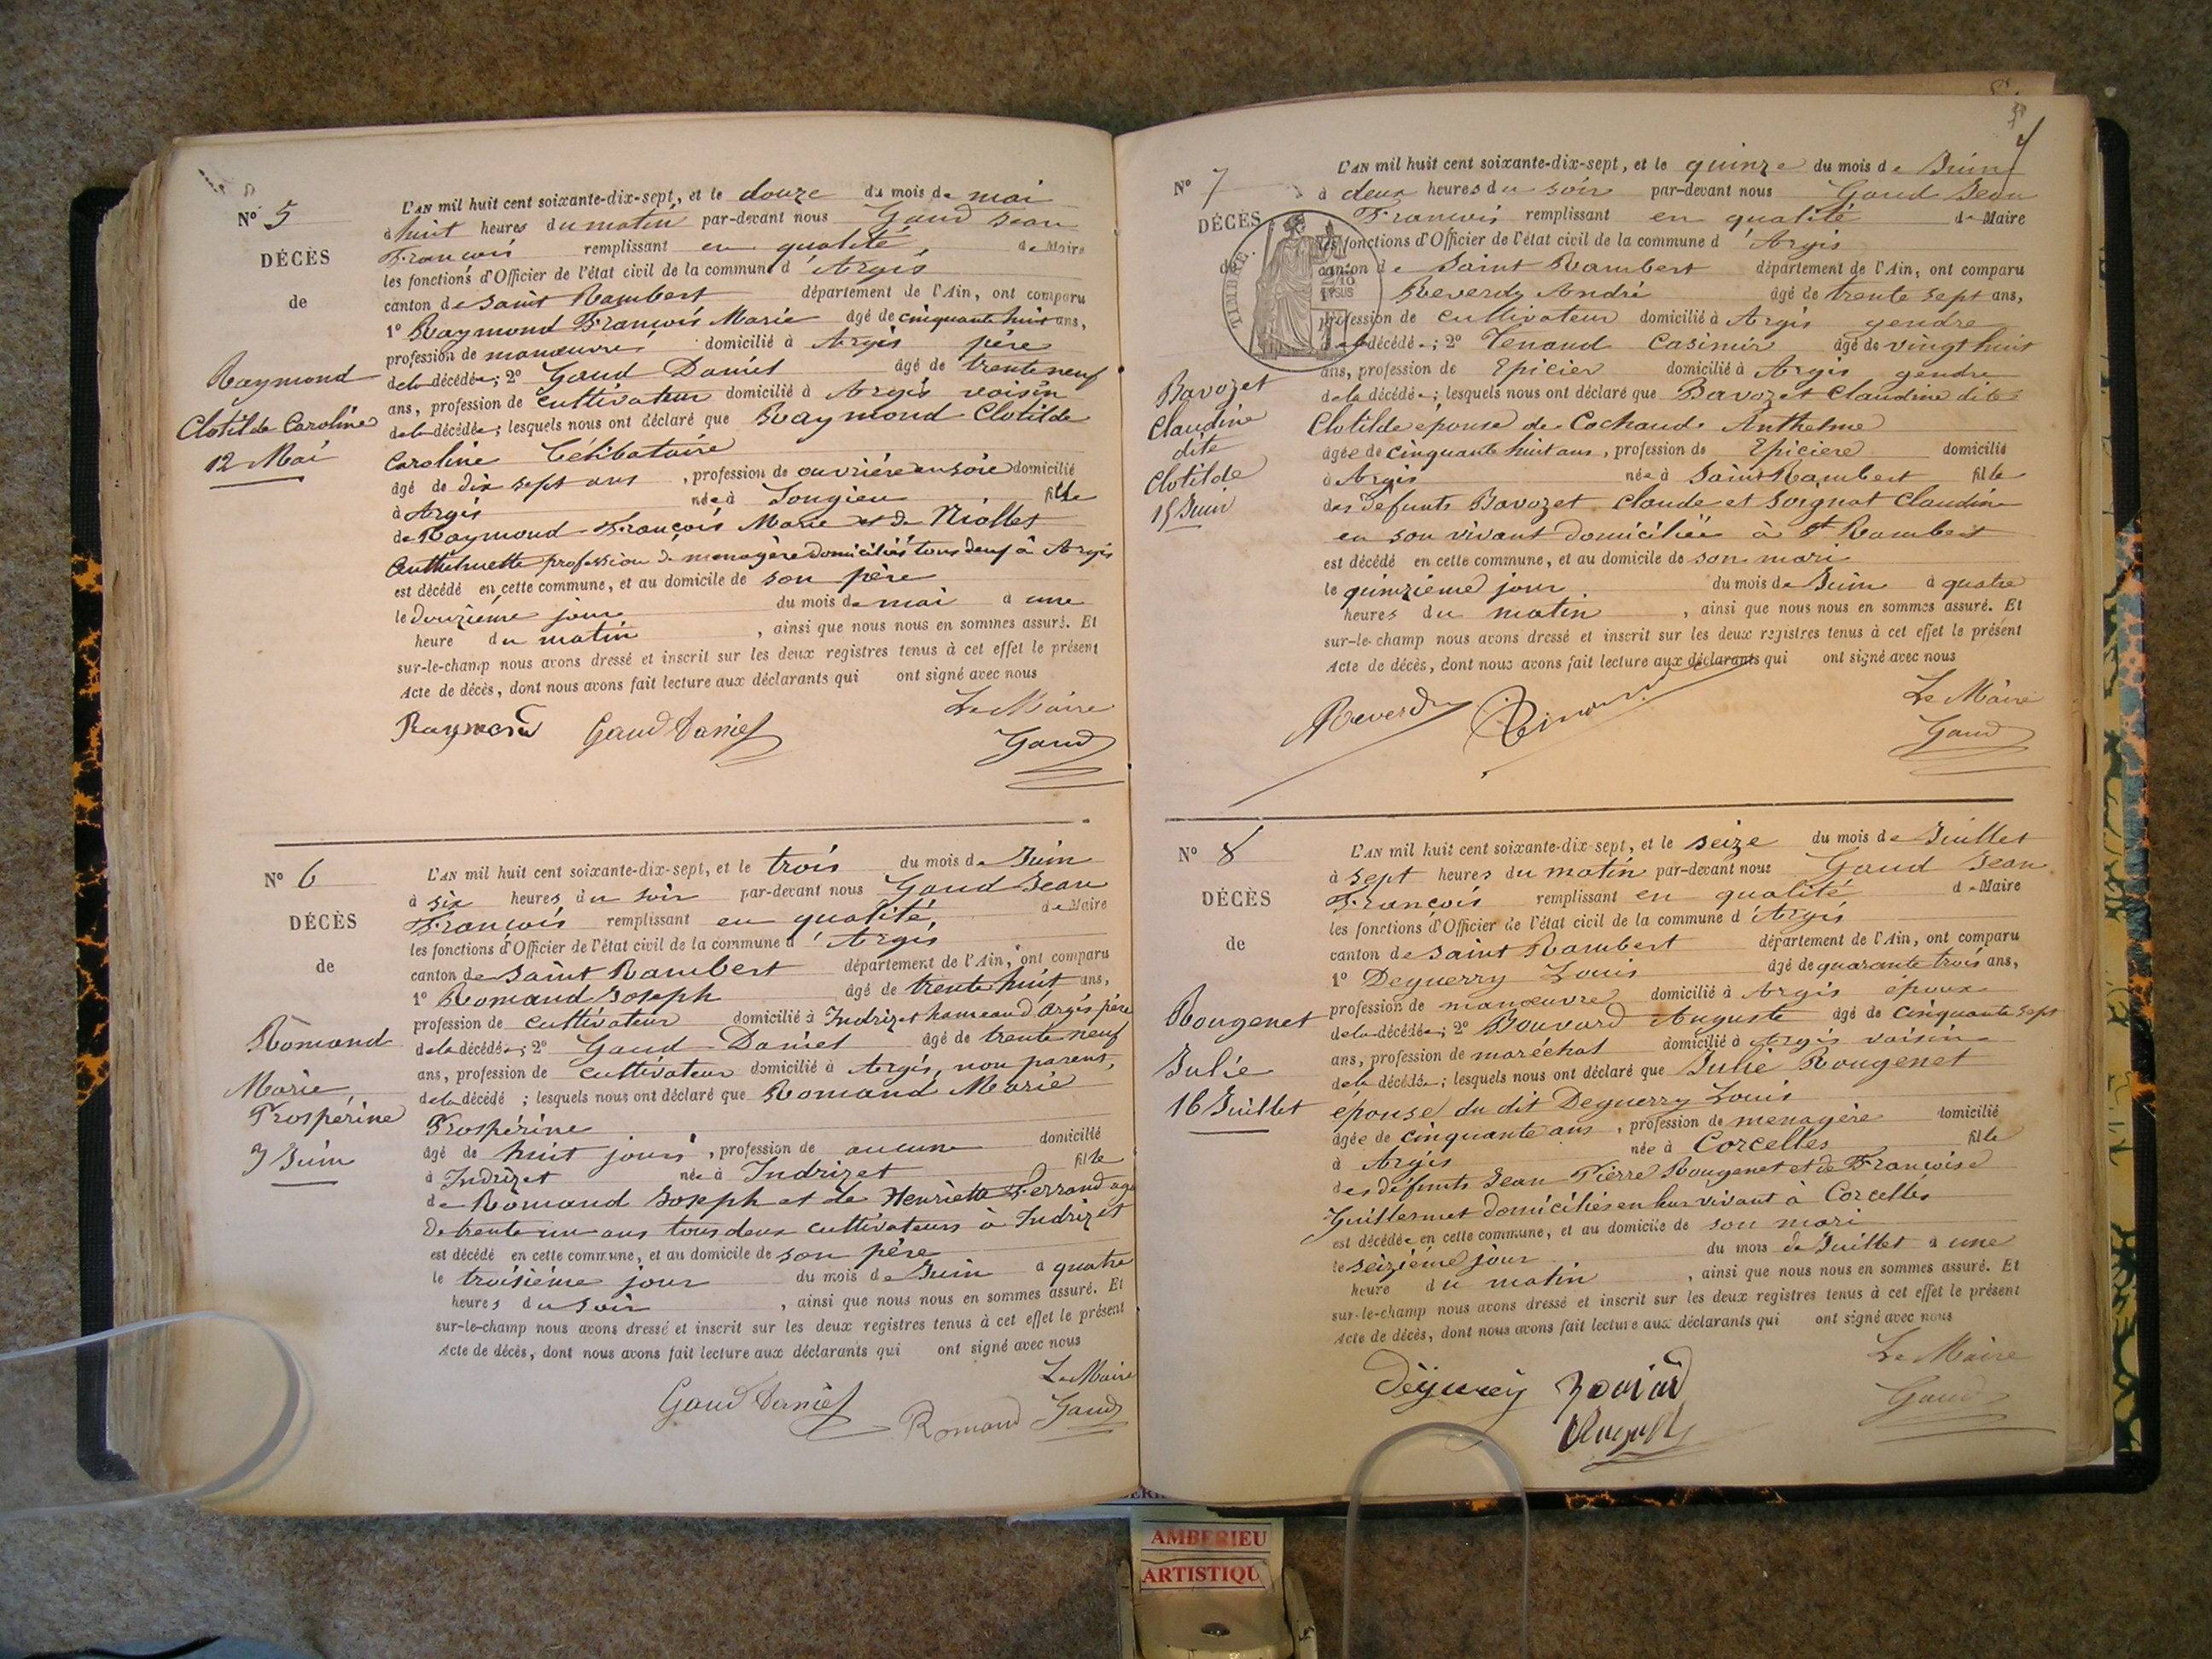 N° 5
DÉCÈS
de
Raymond
Clotilde Caroline
12 Mai
L'AN mil huit cent soixante-dix-sept, et le douze du mois de mai
à huit heures du matin par-devant nous Gaud Jean
François remplissant en qualité de Maire
les fonctions d'Officier de l'état civil de la commune d'Argis
canton de Saint Rambert département de l'Ain, ont comparu
1° Raymond François Marie âgé de cinquante huit ans,
profession de manœuvre domicilié à Argis père
de la décédée; 2° Gaud Daniel âgé de trente neuf
ans, profession de cultivateur domicilié à Argis voisin
de la décédée; lesquels nous ont déclaré que Raymond Clotilde
Caroline Célibataire
âgé de dix sept ans, profession de ouvrière en soie domicilié
à Argis née à Songieu fille
de Raymond François Marie et de Niollet
Anthelmette profession de menagère domiciliés tous deux à Argis
est décédé en cette commune, et au domicile de son père
le douzième jour du mois de mai à une
heure du matin, ainsi que nous nous en sommes assuré. Et
sur-le-champ nous avons dressé et inscrit sur les deux registres tenus à cet effet le présent
Acte de décès, dont nous avons fait lecture aux déclarants qui ont signé avec nous
Le Maire
Raymond Gaud Daniel Gaud
N° 6
DÉCÈS
de
Romand
Marie
Prospérine
3 Juin
L'AN mil huit cent soixante-dix-sept, et le trois du mois de Juin
à six heures du soir par-devant nous Gaud Jean
François remplissant en qualité, de Maire
les fonctions d'Officier de l'état civil de la commune d'Argis
canton de Saint Rambert département de l'Ain, ont comparu
1° Romand Joseph âgé de trente huit ans,
profession de cultivateur domicilié à Indrizet hameau d'Argis père
de la décédée; 2° Gaud Daniel âgé de trente neuf
ans, profession de cultivateur domicilié à Argis, non parent,
de la décédé; lesquels nous ont déclaré que Romand Marie
Prospérine
âgé de huit jours, profession de aucune domicilié
à Indrizet née à Indrizet fille
de Romand Joseph et de Henriette Ferrand agé
de trente un ans tous deux cultivateurs à Indrizet
est décédé en cette commune, et au domicile de son père
le troisième jour du mois de Juin à quatre
heures du soir, ainsi que nous nous en sommes assuré. Et
sur-le-champ nous avons dressé et inscrit sur les deux registres tenus à cet effet le présent
Acte de décès, dont nous avons fait lecture aux déclarants qui ont signé avec nous
Le Maire
Gaud Daniel Romand Gaud
N° 7
DÉCÈS
de
TIMBRE
Bavozet
Claudine
dite
Clotilde
15 Juin
L'AN mil huit cent soixante-dix-sept, et le quinze du mois de Juin
à deux heures du soir par-devant nous Gaud Jean
François remplissant en qualité de Maire
les fonctions d'Officier de l'état civil de la commune d'Argis
canton de Saint Rambert département de l'Ain, ont comparu
Reverdy André âgé de trente sept ans,
profession de cultivateur domicilié à Argis gendre
de la décédée; 2° Tenand Casimir âgé de vingt huit
ans, profession de Epicier domicilié à Argis gendre
de la décédée; lesquels nous ont déclaré que Bavozet Claudine dite
Clotilde épouse de Cochaud Anthelme
âgée de cinquante huit ans, profession de Epiciere domicilié
à Argis née à Saint Rambert fille
des défunts Bavozet Claude et Soignat Claudine
en son vivant domiciliée à St Rambert
est décédé en cette commune, et au domicile de son mari
le quinzième jour du mois de Juin à quatre
heures du matin, ainsi que nous nous en sommes assuré. Et
sur-le-champ nous avons dressé et inscrit sur les deux registres tenus à cet effet le présent
Acte de décès, dont nous avons fait lecture aux déclarants qui ont signé avec nous
Le Maire
Reverdy Gaud
N° 8
DÉCÈS
de
Rougenet
Julie
16 Juillet
L'AN mil huit cent soixante-dix-sept, et le seize du mois de Juillet
à sept heures du matin par-devant nous Gaud Jean
François remplissant en qualité de Maire
les fonctions d'Officier de l'état civil de la commune d'Argis
canton de Saint Rambert département de l'Ain, ont comparu
1° Deguerry Louis âgé de quarante trois ans,
profession de manœuvre domicilié à Argis époux
de la décédée; 2° Bouvard Auguste âgé de cinquante sept
ans, profession de maréchal domicilié à Argis voisin
de la décédée; lesquels nous ont déclaré que Julie Rougenet
épouse du dit Deguerry Louis
âgée de cinquante ans, profession de menagère domicilié
à Argis née à Corcelles fille
des défunts Jean Pierre Rougenet et de Françoise
Guillermet domiciliés en leur vivant à Corcelles
est décédée en cette commune, et au domicile de son mari
le seizième jour du mois de Juillet à une
heure du matin, ainsi que nous nous en sommes assuré. Et
sur-le-champ nous avons dressé et inscrit sur les deux registres tenus à cet effet le présent
Acte de décès, dont nous avons fait lecture aux déclarants qui ont signé avec nous
Le Maire
Gaud
AMBERIEU
ARTISTIQU